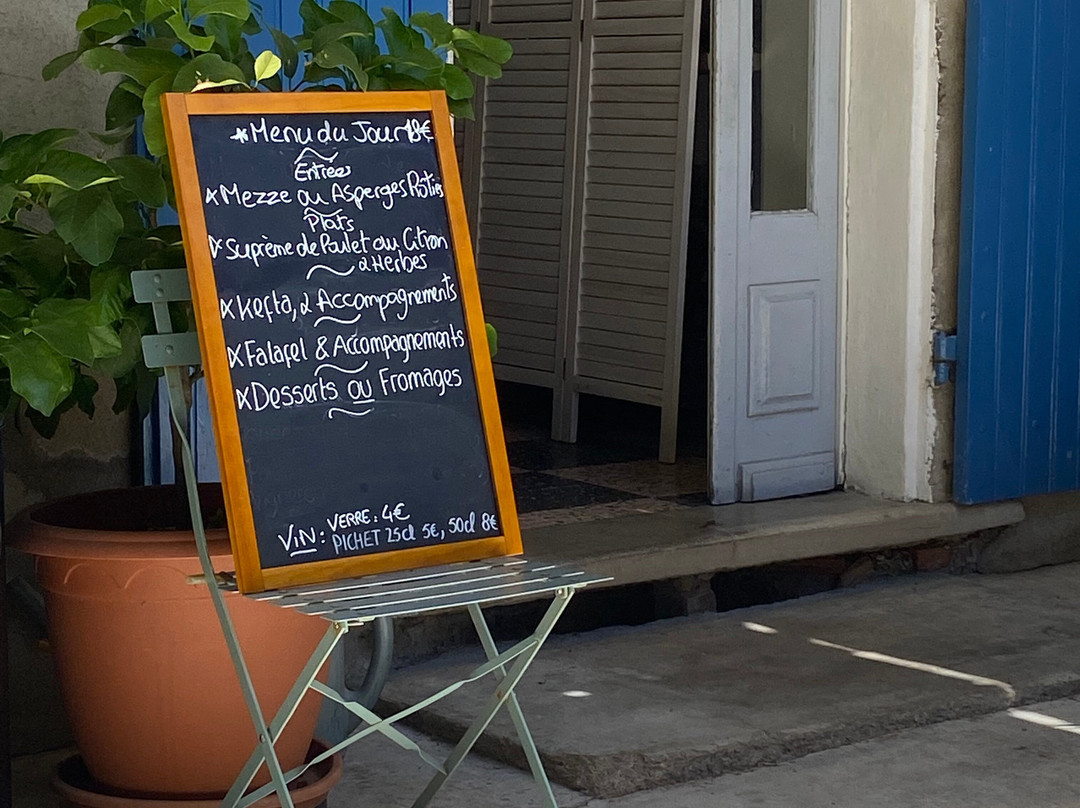 *Menu du Jour 18€
Entrées
x Mezze ou Asperges Roties
Plats
x Suprème de Poulet au Citron
& Herbes
x Kefta, & Accompagnements
x Falafel & Accompagnements
x Desserts ou Fromages
VIN : VERRE : 4€
PICHET 25cl 5€, 50cl 8€